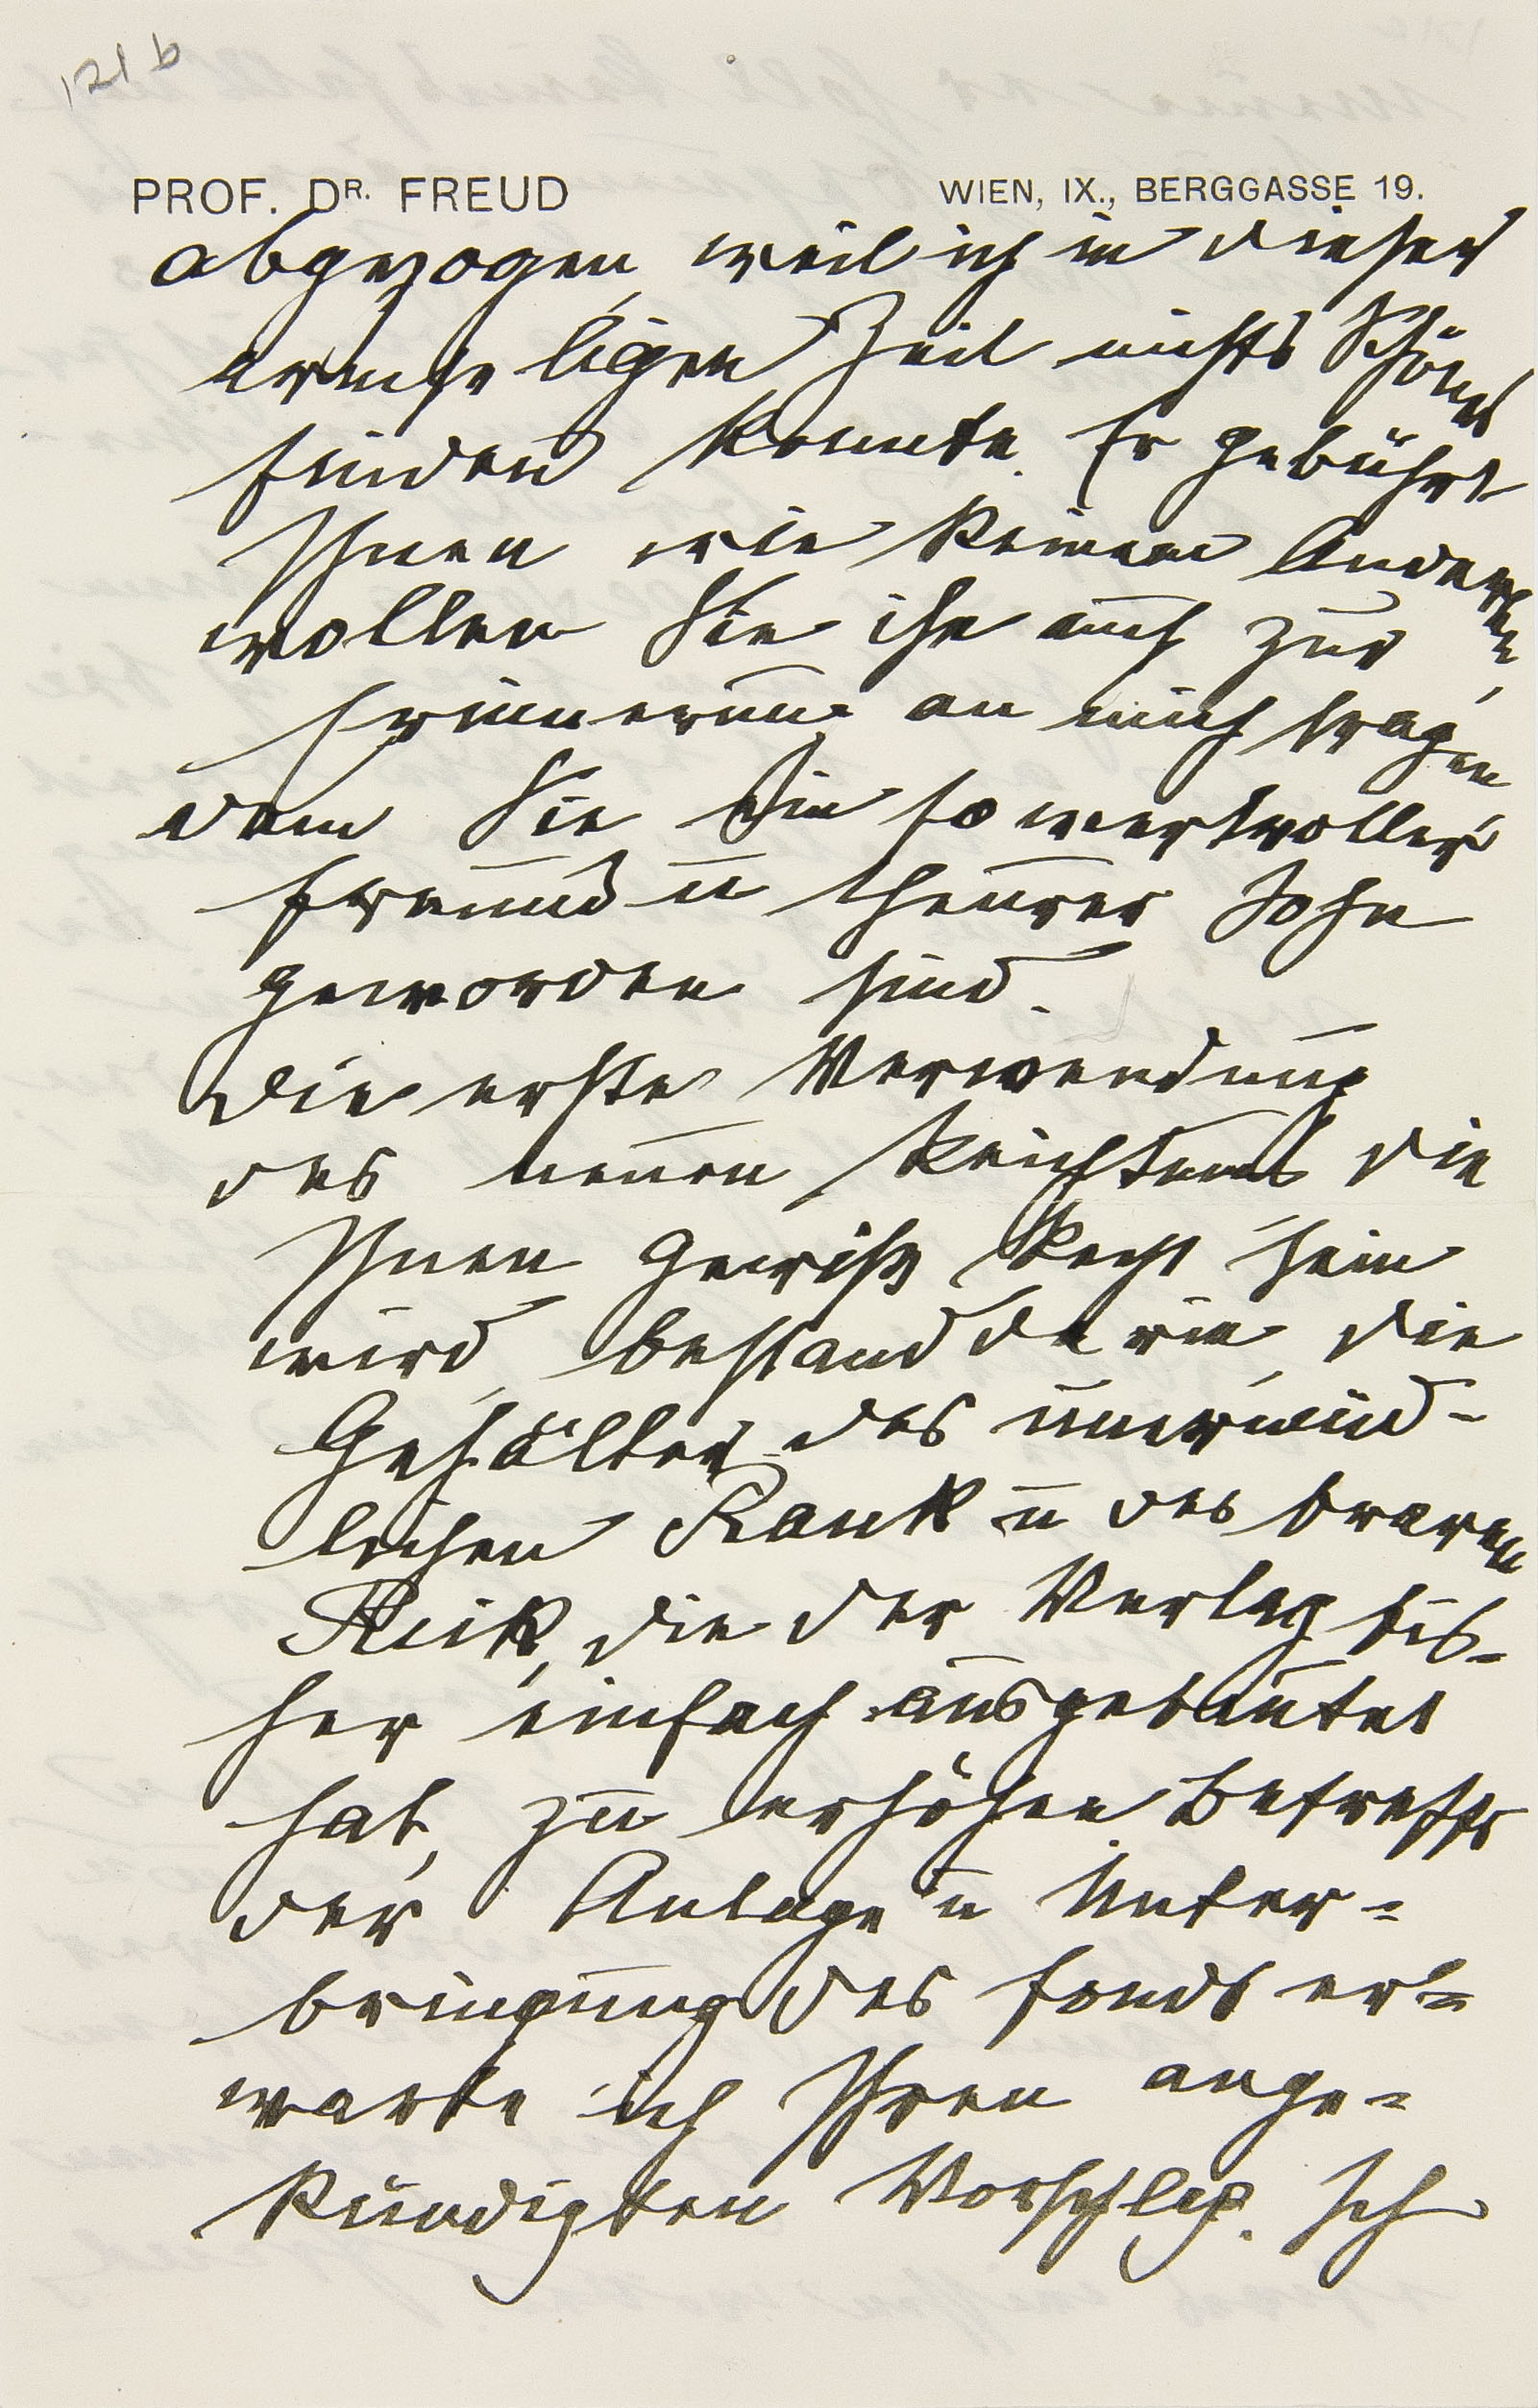 121 b
PROF. DR. FREUD WIEN, IX., BERGGASSE 19.
abgezogen, weil ich in dieser
armseligen Zeit nichts Schönes
finden konnte. Er gebührt
Ihnen wie keinem Anderen,
wollen Sie ihn auch zur
Erinnerung an mich tragen
dem Sie ein so wertvoller
Freund u theurer Sohn
geworden sind.
Die erste Verwendung
des neuen Reichtums die
Ihnen gewiß Recht sein
wird, bestand darin, die
Gehälter des unermüd-
lichen Rank u des braven
Reik, die der Verlag bis-
her einfach ausgebeutet
hat, zu erhöhen. Betreffs
der Anlage u Unter-
bringung des Fonds er-
warte ich Ihren ange-
kündigten Vorschlag. Ich